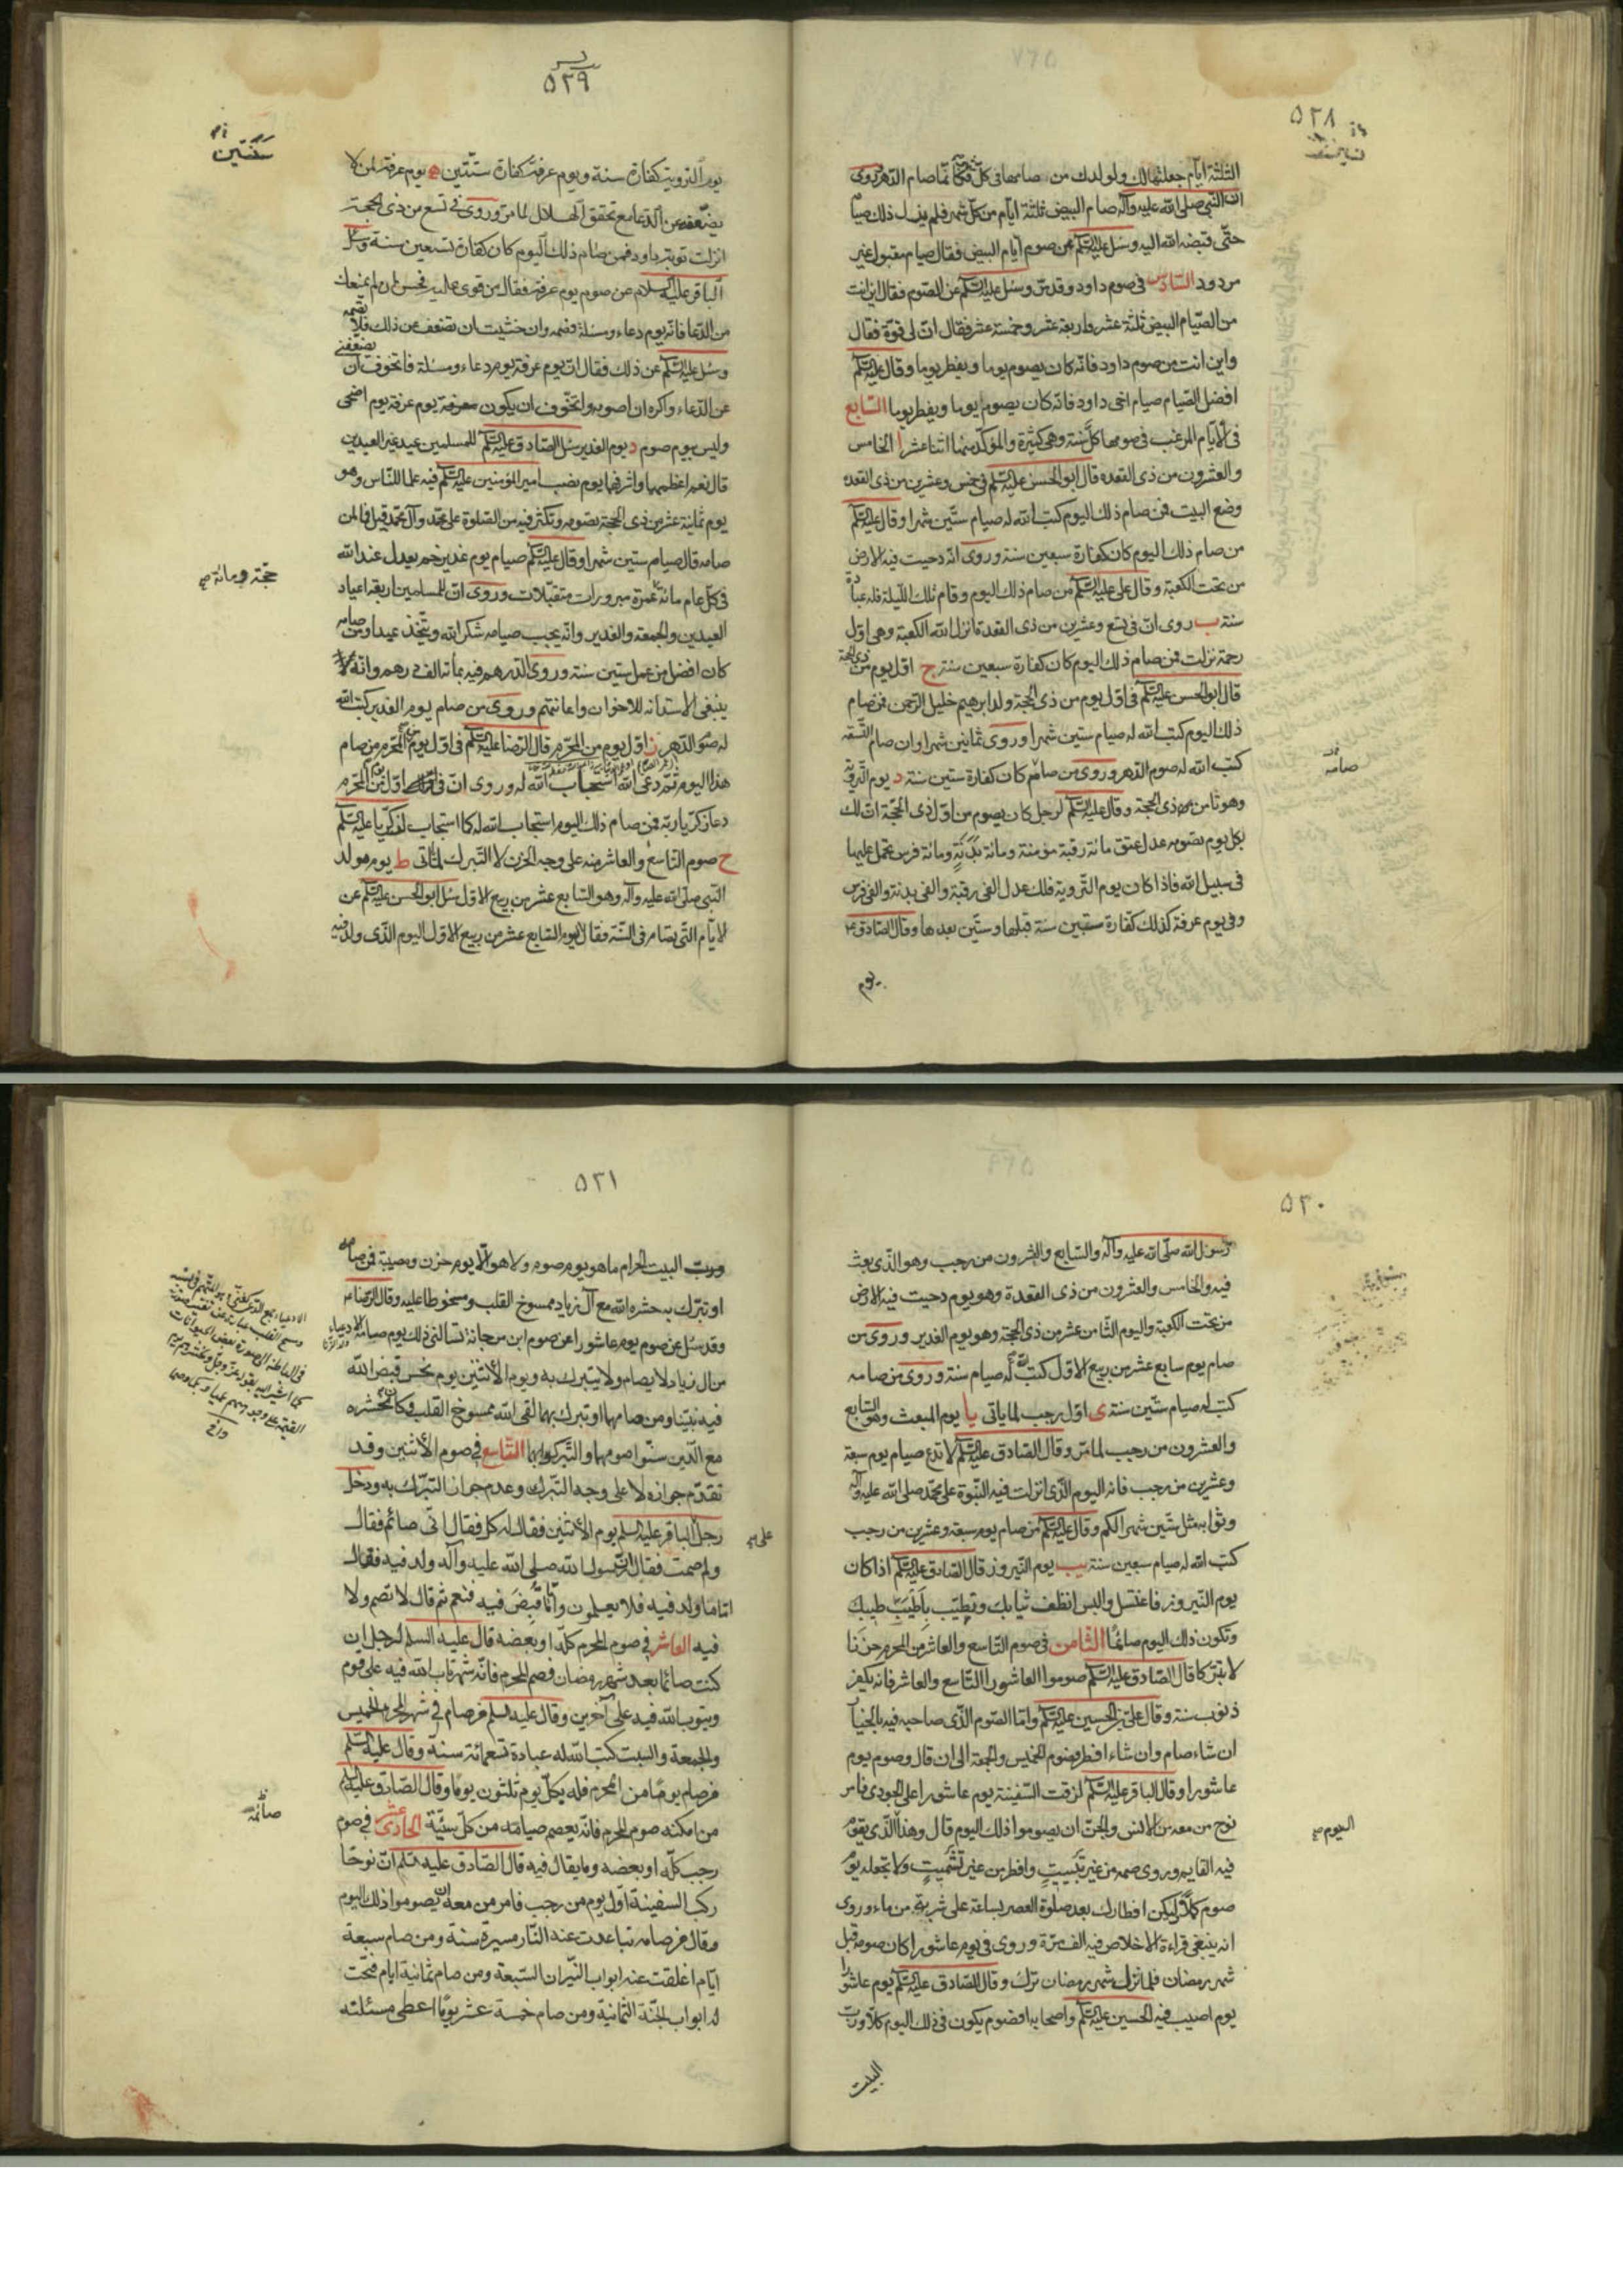 ٥٢٨
الثلثة ايام جعلتها لك ولولدك من صامها في كل شهر فكانما صام الدهر وروى
ان النبي صلى الله عليه وآله صام البيض ثلثة ايام من كل شهر فلم يزل ذلك صيامه
حتى قبضه الله اليه وسئل عليه السلام عن صوم ايام البيض فقال صيام مقبول غير
مردود السادس في صوم داود وقد مر وسئل عليه السلام عن الصوم فقال اين انت
من الصيام البيض ثلثة عشر واربعة عشر وخمسة عشر فقال ان لى قوة فقال
واين انت من صوم داود فانه كان يصوم يوما ويفطر يوما وقال عليه السلام
افضل الصيام صيام اخى داود فانه كان يصوم يوما ويفطر يوما السابع
في الايام المرغب في صومها كل سنة وهي كثيرة والمؤكد منها اثنا عشر ا الخامس
والعشرون من ذى القعدة قال ابو الحسن عليه السلام في خمس وعشرين من ذى القعدة
وضع البيت فمن صام ذلك اليوم كتب الله له صيام ستين شهرا وقال عليه السلام
من صام ذلك اليوم كان كفارة سبعين سنة وروى انه دحيت فيه الارض
من تحت الكعبة وقال على عليه السلام من صام ذلك اليوم وقام تلك الليلة فله عبادة
سنة ب روى ان في تسع وعشرين من ذى القعدة انزل الله الكعبة وهى اول
رحمة نزلت فمن صام ذلك اليوم كان كفارة سبعين سنة ج اول يوم من ذى الحجة
قال ابو الحسن عليه السلام في اول يوم من ذى الحجة ولد ابرهيم خليل الرحمن فمن صام
ذلك اليوم كتب الله له صيام ستين شهرا وروى ثمانين شهرا وان صام التسعة
كتب الله له صوم الدهر وروى من صامه كان كفارة ستين سنة د يوم التروية
صامه
وهو ثامن ذى الحجة وقال عليه السلام لرجل كان يصوم من اول ذى الحجة ان لك
بكل يوم تصومه عدل عتق مائة رقبة مؤمنة ومائة بدنة ومائة فرس تحمل عليها
في سبيل الله فاذا كان يوم التروية فلك عدل الفى رقبة والفى بدنة والفى فرس
وفي يوم عرفة كذلك كفارة ستين سنة قبلها وستين بعدها وقال الصادق ع
يوم
٥٢٩
سنتين
يوم التروية كفارة سنة ويوم عرفة كفارة سنتين ه يوم عرفة لمن لا
يضعفه عن الدعا مع تحقق الهلال لما مر وروى في تسع من ذى الحجة
انزلت توبة داود فمن صام ذلك اليوم كان كفارة تسعين سنة وسئل
الباقر عليه السلام عن صوم يوم عرفة فقال من قوى عليه فحسن ان لم يمنعك
من الدعا فانه يوم دعاء ومسئلة فصمه وان خشيت ان تضعف عن ذلك فلا تصمه
وسئل عليه السلام عن ذلك فقال ان يوم عرفة يوم دعاء ومسئلة فاتخوف ان يضعفنى
عن الدعاء واكره ان اصومه واتخوف ان يكون عرفة يوم اضحى
وليس بيوم صوم و يوم الغدير سئل الصادق عليه السلام للمسلمين عيد غير العيدين
قال نعم اعظمها واشرفها يوم نصب امير المؤمنين عليه السلام فيه علما للناس وهو
يوم ثمانية عشر من ذى الحجة تصومه وتكثر فيه من الصلوة على محمد وآل محمد قيل فما لمن
صامه قال صيام ستين شهرا وقال عليه السلام صيام يوم غدير خم يعدل عند الله
حجة ومائة
في كل عام مائة عمرة مبرورات متقبلات وروى ان للمسلمين اربعة اعياد
العيدين والجمعة والغدير وانه يجب صيامه شكرا لله ويتخذ عيدا ومن صامه
كان افضل من عمل ستين سنة وروى الدرهم فيه بمائة الف درهم وانه لا
ينبغى الاستدانه للاخوان واعانتهم وروى من صام يوم الغدير كتب الله
له صوم الدهر ز اول يوم من المحرم قال الرضا عليه السلام في اول يوم من المحرم من صام
هذا اليوم ثم دعى الله استجاب الله له وروى ان في اول يوم من المحرم
دعا زكريا ربه فمن صام ذلك اليوم استجاب الله له كما استجاب لزكريا عليه السلام
ح صوم التاسع والعاشر منه على وجه الحزن لا التبرك لما ياتى ط يوم مولد
النبي صلى الله عليه وآله وهو السابع عشر من ربيع الاول سئل ابو الحسن عليه السلام عن
الايام التى تصام في السنة فقال اليوم السابع عشر من ربيع الاول اليوم الذى ولد فيه
٥٣٠
رسول الله صلى الله عليه وآله والسابع والعشرون من رجب وهو الذى بعث
فيه والخامس والعشرون من ذى القعدة وهو يوم دحيت فيه الارض
من تحت الكعبة واليوم الثامن عشر من ذى الحجة وهو يوم الغدير وروى من
صام يوم سابع عشر من ربيع الاول كتب الله له صيام سنة وروى من صامه
كتب له صيام ستين سنة ى اول رجب لما ياتى يا يوم المبعث وهو السابع
والعشرون من رجب لما مر وقال الصادق عليه السلام لا تدع صيام يوم سبعة
وعشرين من رجب فانه اليوم الذى انزلت فيه النبوة على محمد صلى الله عليه وآله
وثوابه مثل ستين شهرا لكم وقال عليه السلام من صام يوم سبعة وعشرين من رجب
كتب الله له صيام سبعين سنة يب يوم النيروز قال الصادق عليه السلام اذا كان
يوم النيروز فاغتسل والبس انظف ثيابك وتطيب باطيب طيبك
وتكون ذلك اليوم صائما الثامن في صوم التاسع والعاشر من المحرم حزنا
لا تبركا قال الصادق عليه السلام صوموا العاشورا التاسع والعاشر فانه يكفر
ذنوب سنة وقال على بن الحسين عليه السلام واما الصوم الذى صاحبه فيه بالخيار
ان شاء صام وان شاء افطر فصوم الخميس والجمعة الى ان قال وصوم يوم
عاشورا وقال الباقر عليه السلام لزقت السفينة يوم عاشورا على الجودى فامر
نوح من معه من الانس والجن ان يصوموا ذلك اليوم قال وهذا الذى يقوم
اليوم
فيه القايم وروى صمه من غير تبييت وافطر من غير تشميت ولا تجعله يوم
صوم كملا وليكن افطارك بعد صلوة العصر بساعة على شربة من ماء وروى
انه ينبغى قراءة الاخلاص فيه الف مرة وروى في يوم عاشورا كان صومه قبل
شهر رمضان فلما نزل شهر رمضان ترك وقال الصادق عليه السلام يوم عاشورا
يوم اصيب فيه الحسين عليه السلام واصحابه افصوم يكون في ذلك اليوم كلا ورب
البيت
٥٣١
ورب البيت الحرام ما هو يوم صوم ولا هو الا يوم حزن ومصيبة فمن صامه
او تبرك به حشره الله مع آل زياد ممسوخ القلب ومسخوطا عليه وقال الرضا ع
وقد سئل عن صوم يوم عاشورا عن صوم ابن مرجانة تسالنى ذلك يوم صامه الادعياء
من آل زياد لا يصام ولا يتبرك به ويوم الاثنين يوم نحس قبض الله
فيه نبيه ومن صامهما او تبرك بهما لقى الله ممسوخ القلب وكان محشره
مع الذين سنوا صومها والتبرك بها التاسع في صوم الاثنين وقد
تقدم جوازه لا على وجه التبرك وعدم جواز التبرك به ودخل
رجل الباقر عليه السلم يوم الاثنين فقال له كل فقال انى صائم فقال
ولم صمت فقال ان رسول الله صلى الله عليه وآله ولد فيه فقال
اما ما ولد فيه فلا يعلمون واما قبض فيه فنعم ثم قال لا تصم ولا
فيه العاشر في صوم المحرم كله او بعضه قال عليه السلم لرجل ان
كنت صائما بعد شهر رمضان فصم المحرم فانه شهر تاب الله فيه على قوم
ويتوب الله فيه على آخرين وقال عليه السلم من صام في شهر المحرم الخميس
والجمعة والسبت كتب الله له عبادة تسعمائة سنة وقال عليه السلم
من صام يوما من المحرم فله بكل يوم ثلثون يوما وقال الصادق عليه السلم
من امكنه صوم المحرم فانه يعصم صيامه من كل سيئة الحادى عشر في صوم
صائمه
رجب كله او بعضه وما يقال فيه قال الصادق عليه السلم ان نوحا
ركب السفينة اول يوم من رجب فامر من معه ان يصوموا ذلك اليوم
وقال من صامه تباعدت عنه النار مسيرة سنة ومن صام سبعة
ايام اغلقت عنه ابواب النيران السبعة ومن صام ثمانية ايام فتحت
له ابواب الجنة الثمانية ومن صام خمسة عشر يوما اعطى مسئلته